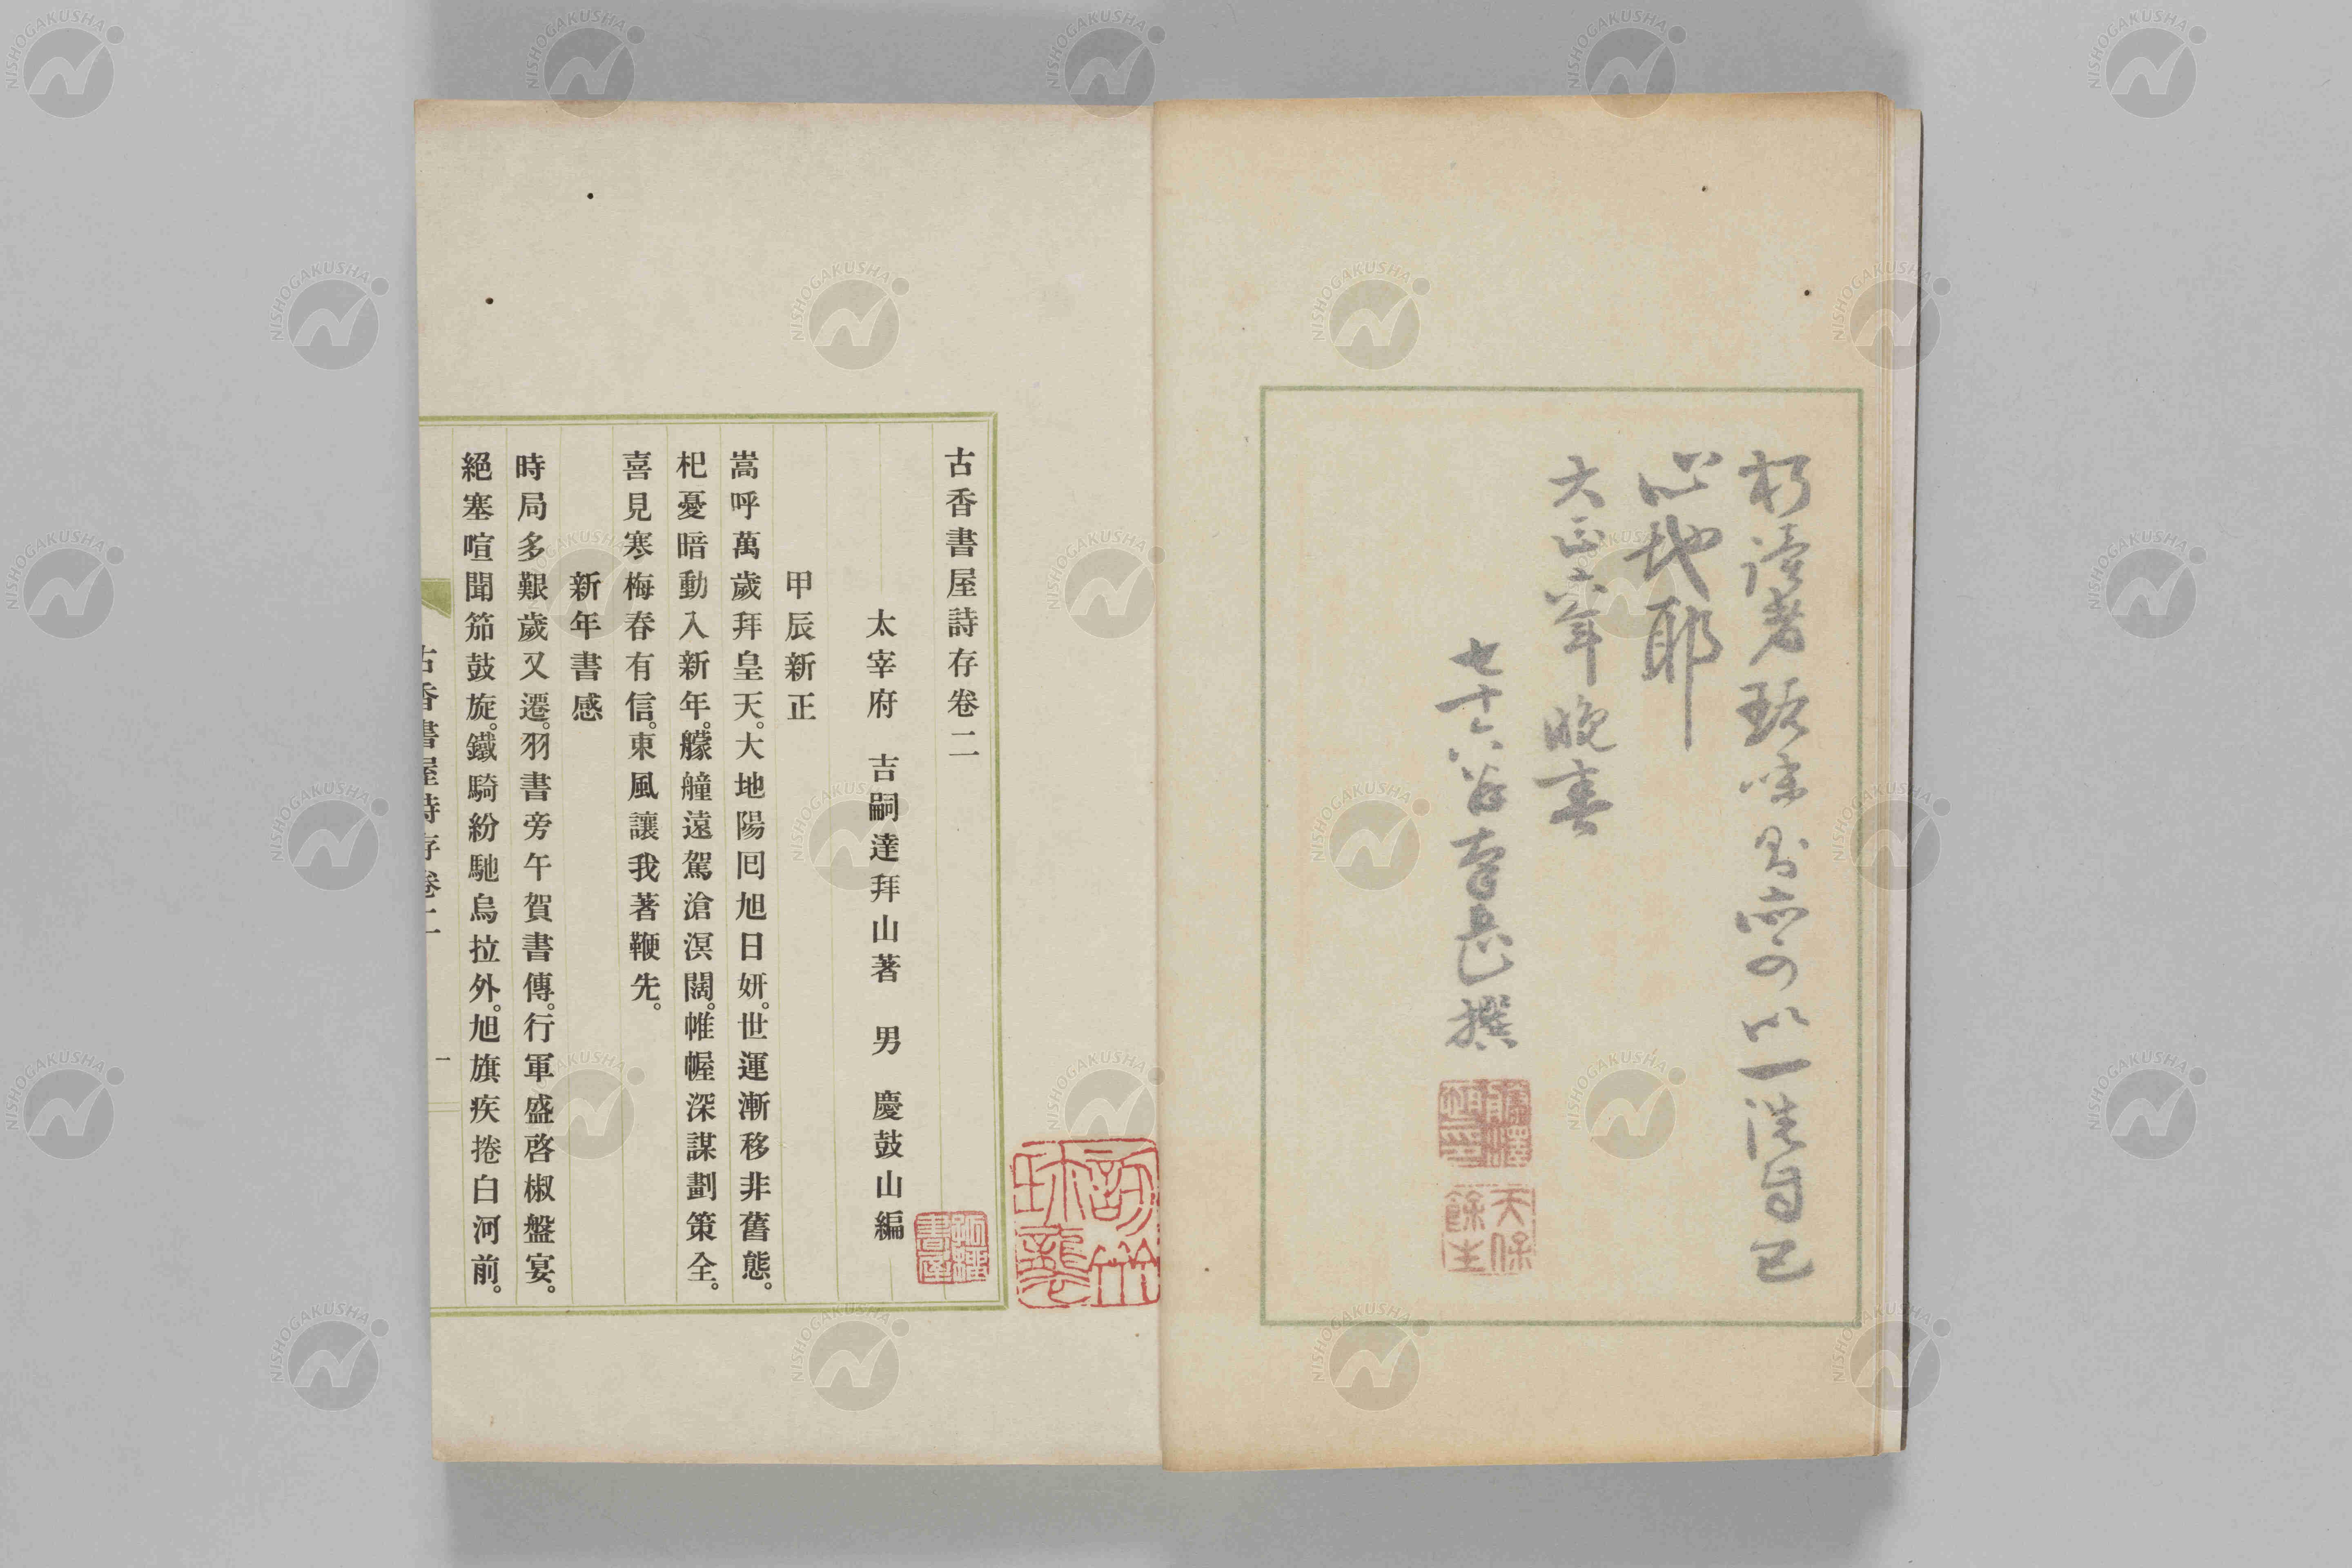 朽讀者玩味則亦可以一洗自己
心地耶
大正六年晩春
七十八翁
撰
天保
餘生
古香書屋詩存卷二
太宰府 吉嗣達拜山著 男 慶鼓山編
甲辰新正
嵩呼萬歲拜皇天。大地陽囘旭日妍。世運漸移非舊態。
杞憂暗動入新年。艨艟遠駕滄溟闊。帷幄深謀劃策全。
喜見寒梅春有信。東風讓我著鞭先。
新年書感
時局多艱歲又遷。羽書旁午賀書傳。行軍盛啓椒盤宴。
絕塞喧聞笳鼓旋。鐵騎紛馳烏拉外。旭旗疾捲白河前。
古香書屋詩存卷二
一
NISHOGAKUSHA